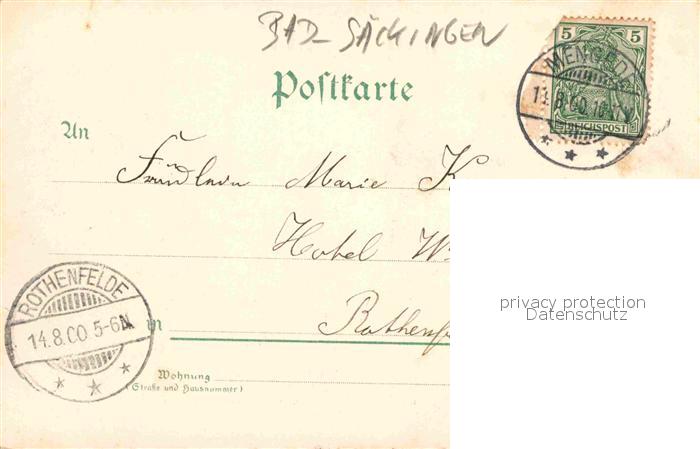 BAD-SÄCKINGEN
5 5
MENGEDE
14.8.00
REICHSPOST
Postkarte
An
Fräulein Marie K
Hotel W
ROTHENFELDE
14.8.00 5-6N
in Rothenf
Wohnung
(Straße und Hausnummer)
privacy protection
Datenschutz